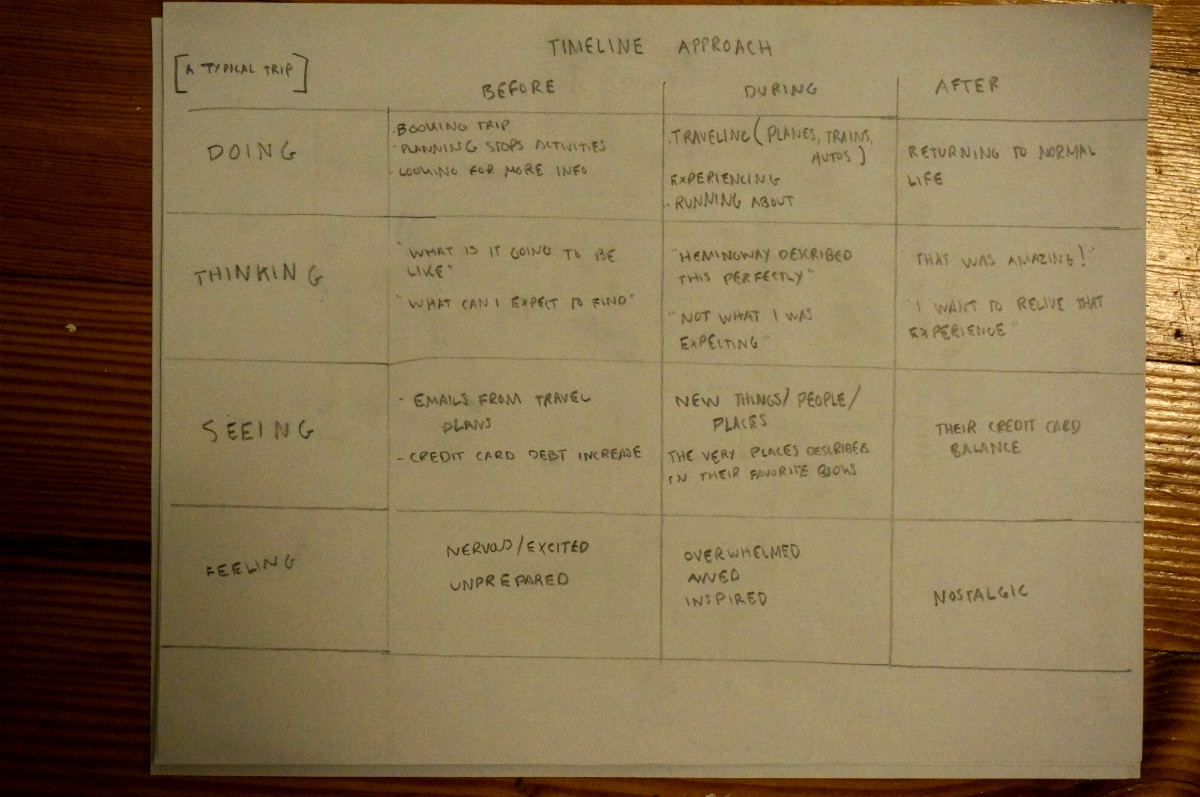 TIMELINE APPROACH
[A TYPICAL TRIP]
BEFORE
DURING
AFTER
DOING
·BOOKING TRIP
-PLANNING STOPS ACTIVITIES
-LOOKING FOR MORE INFO
·TRAVELING (PLANES, TRAINS,
AUTOS)
EXPERIENCING
·RUNNING ABOUT
RETURNING TO NORMAL
LIFE
THINKING
"WHAT IS IT GOING TO BE
LIKE"
"WHAT CAN I EXPECT TO FIND"
"HEMINGWAY DESCRIBED
THIS PERFECTLY"
"NOT WHAT I WAS
EXPECTING"
THAT WAS AMAZING!"
"I WANT TO RELIVE THAT
EXPERIENCE"
SEEING
- EMAILS FROM TRAVEL
PLANS
- CREDIT CARD DEBT INCREASE
NEW THINGS/PEOPLE/
PLACES
THE VERY PLACES DESCRIBED
IN THEIR FAVORITE BOOKS
THEIR CREDIT CARD
BALANCE
FEELING
NERVOUS/EXCITED
UNPREPARED
OVERWHELMED
AWED
INSPIRED
NOSTALGIC